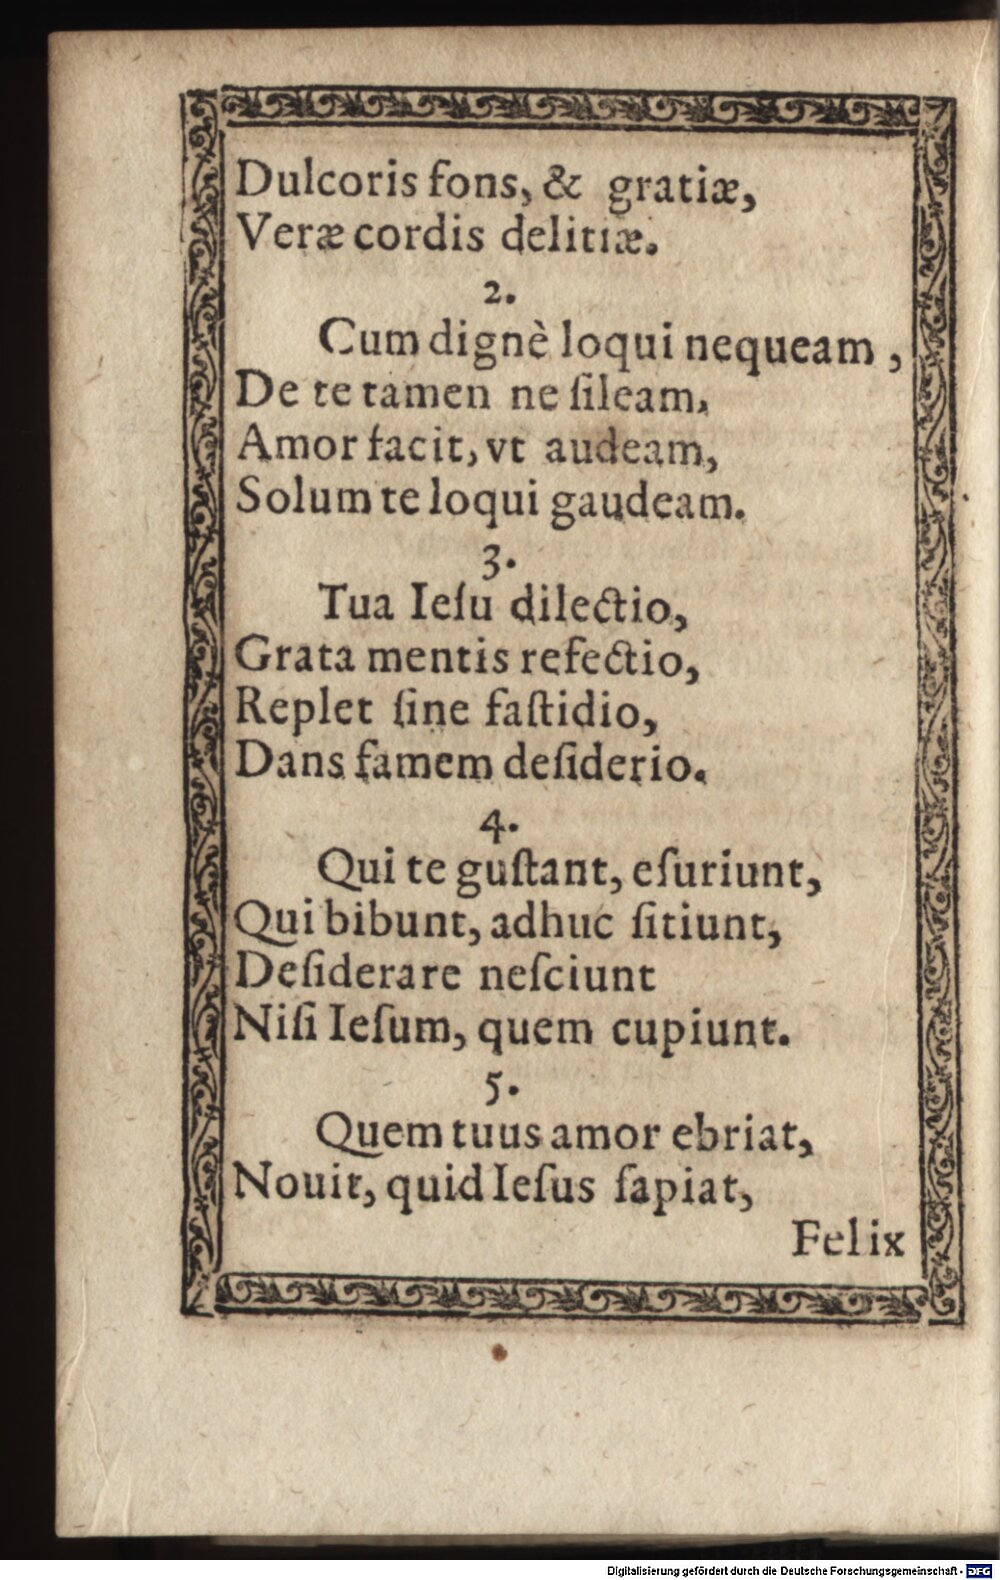 Dulcoris fons, & gratiæ,
Veræ cordis delitiæ.
2.
Cum dignè loqui nequeam,
De te tamen ne ſileam,
Amor facit, vt audeam,
Solum te loqui gaudeam.
3.
Tua Ieſu dilectio,
Grata mentis refectio,
Replet ſine faſtidio,
Dans famem deſiderio.
4.
Qui te guſtant, eſuriunt,
Qui bibunt, adhuc ſitiunt,
Deſiderare neſciunt
Niſi Ieſum, quem cupiunt.
5.
Quem tuus amor ebriat,
Nouit, quid Ieſus ſapiat,
Felix
Digitalisierung gefördert durch die Deutsche Forschungsgemeinschaft - DFG